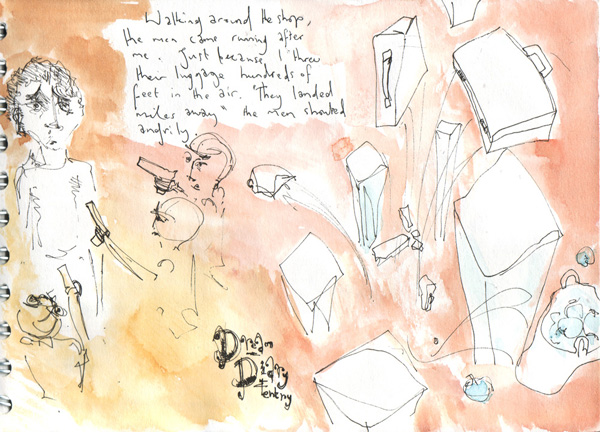 Walking around the shop,
the men came running after
me. Just because, I threw
their luggage hundreds of
feet in the air. "They landed
miles away" the men shouted
angrily.
Diary